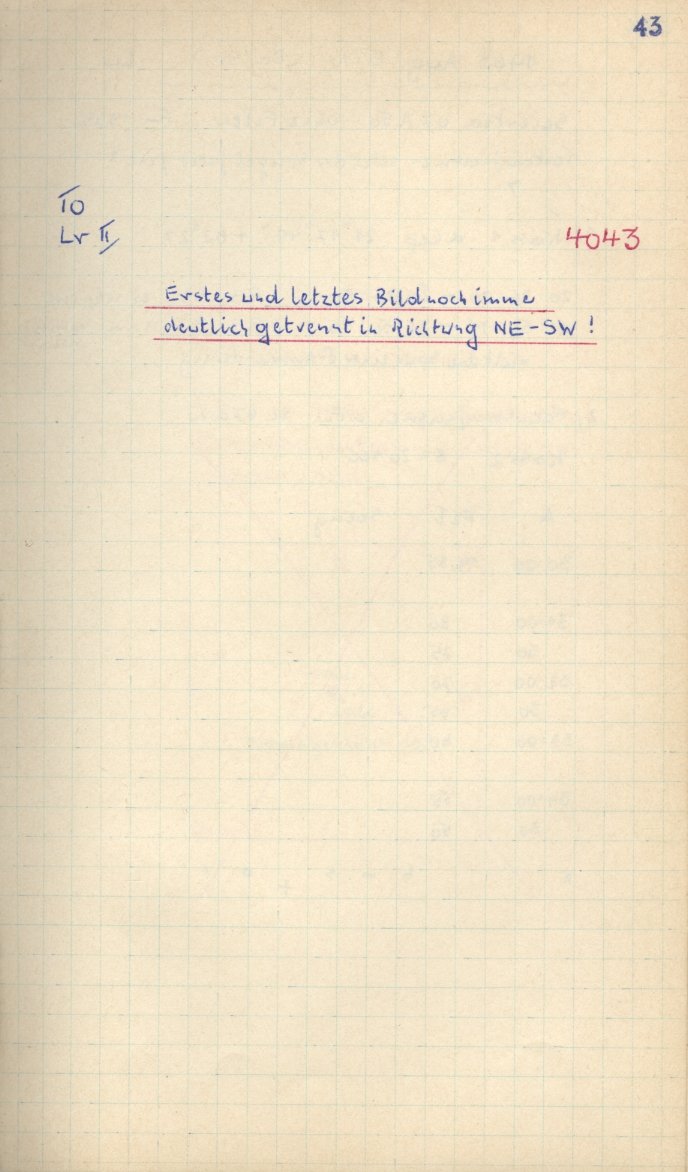 43
TO
Lr II
4043
Erstes und letztes Bild noch imme
deutlich getrennt in Richtung NE-SW !